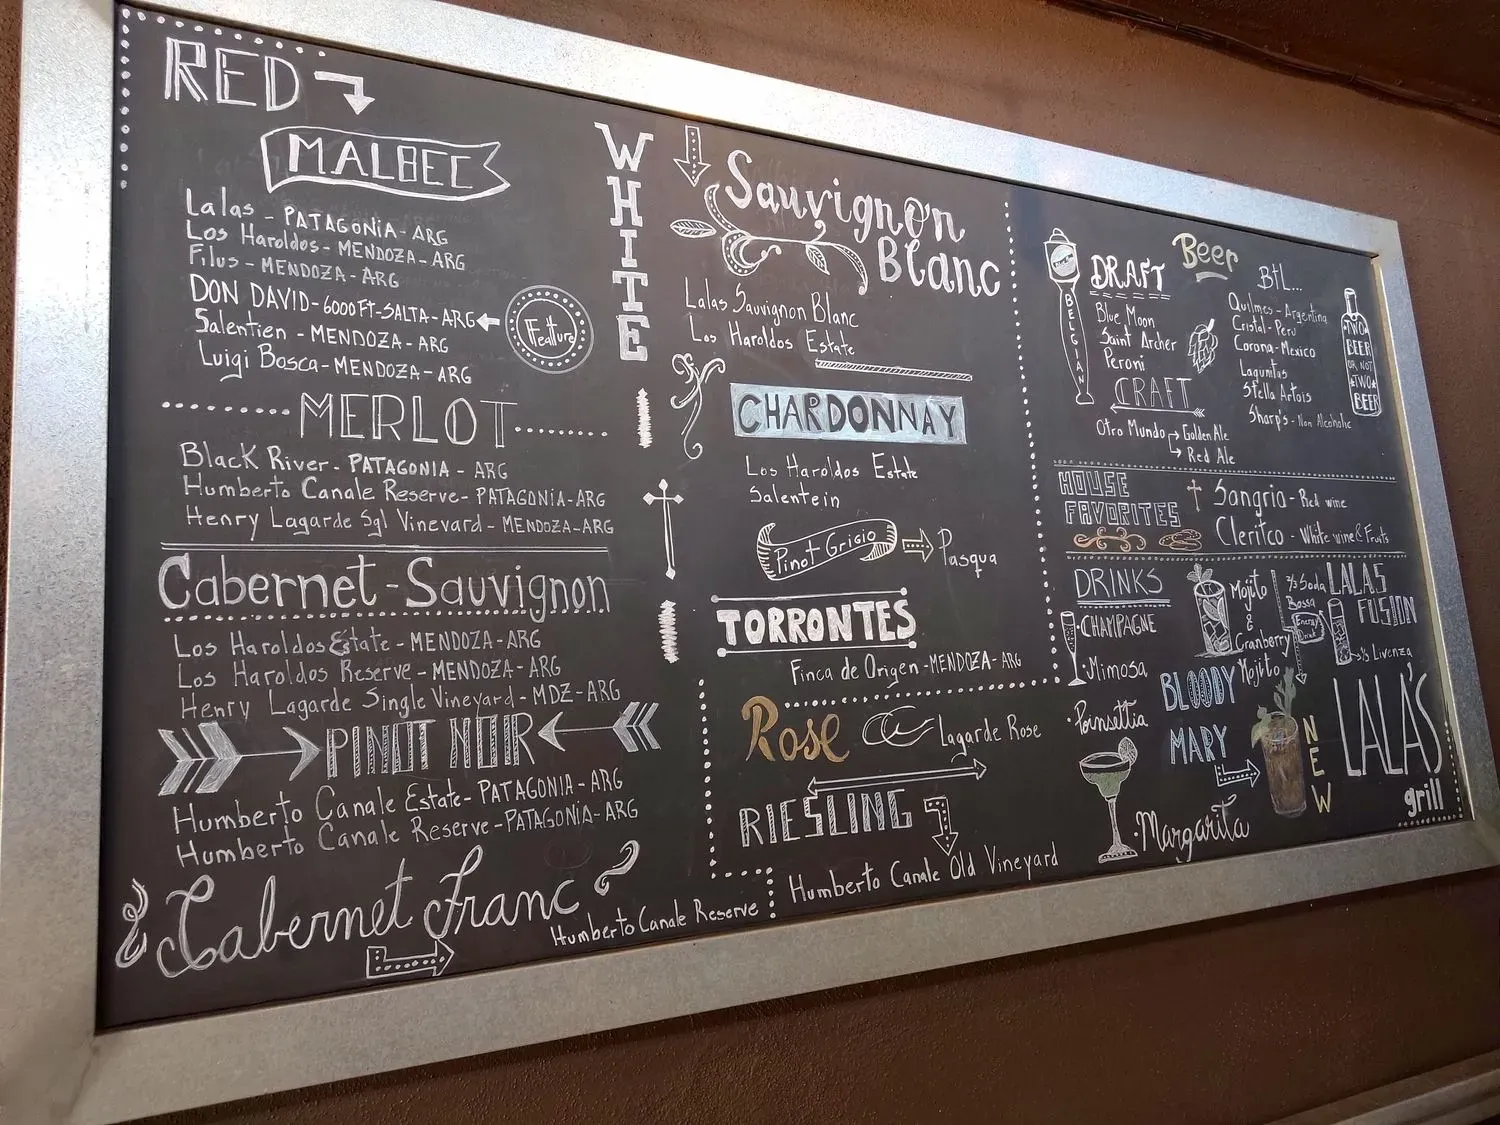 RED
MALBEC
Lalas - PATAGONIA - ARG
Los Haroldos - MENDOZA - ARG
Filus - MENDOZA - ARG
DON DAVID - 6000 FT - SALTA - ARG
Featture
Salentien - MENDOZA - ARG
Luigi Bosca - MENDOZA - ARG
MERLOT
Black River - PATAGONIA - ARG
Humberto Canale Reserve - PATAGONIA - ARG
Henry Lagarde Sgl Vinevard - MENDOZA - ARG
Cabernet - Sauvignon
Los Haroldos Estate - MENDOZA - ARG
Los Haroldos Reserve - MENDOZA - ARG
Henry Lagarde Single Vineyard - MDZ - ARG
PINOT NOIR
Humberto Canale Estate - PATAGONIA - ARG
Humberto Canale Reserve - PATAGONIA - ARG
Cabernet Franc
Humberto Canale Reserve
WHITE
Sauvignon
Blanc
Lalas Sauvignon Blanc
Los Haroldos Estate
CHARDONNAY
Los Haroldos Estate
Salentein
Pinot Grigio
Pasqua
TORRONTES
Finca de Origen - MENDOZA - ARG
Rose
Lagarde Rose
RIESLING
Humberto Canale Old Vineyard
Beer
BELGIAN
DRAFT
Blue Moon
Saint Archer
Peroni
CRAFT
Otro Mundo
Golden Ale
Red Ale
BtL...
Quilmes - Argentina
Cristal - Peru
Corona - Mexico
Lagunitas
Stella Artois
Sharp's - Non Alcoholic
TWO
BEER
OR NOT
TWO
BEER
HOUSE
FAVORITES
Sangria - Red wine
Cleritco - White wine & Fruits
DRINKS
CHAMPAGNE
Mimosa
Poinsettia
Mojito
&
Cranberry
Mojito
BLOODY
MARY
NEW
Margarita
LALA'S
FUSION
Soda
Bossa
Energy
Drink
Livenza
LALA'S
grill